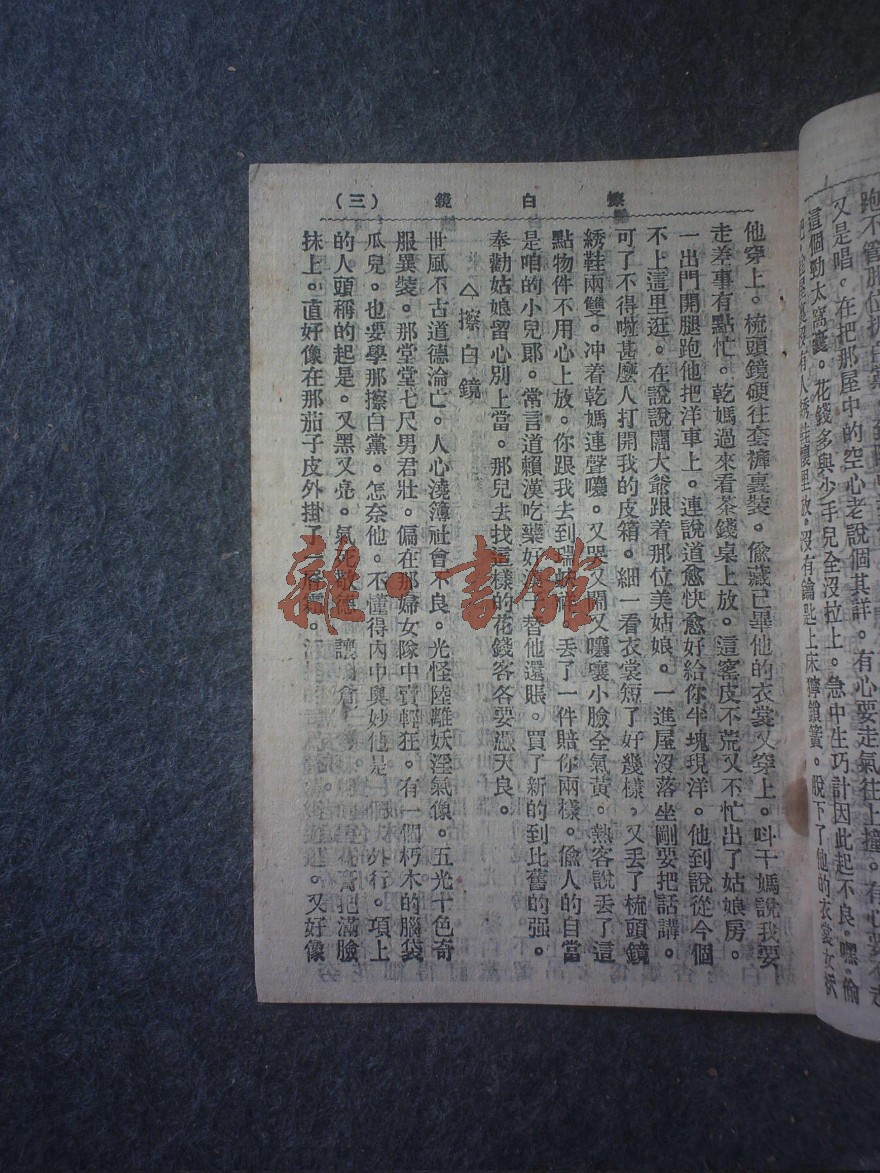 跑不管那位
又是唱。在把那屋中的空心老說個其詳。有心要走氣往上撞。有心要不走
這個勁太窩囊。花錢多與少手兒全沒拉上。急中生巧計因此起不良。嘿。偷
沒有人綉鞋懷里放。沒有鑰匙上床擰鎖簧。脫下了他的衣裳女袄
擦白鏡（三）
他穿上。梳頭鏡硬往套褲裏裝。偷藏已畢他的衣裳又穿上。呌干媽說我要
走差事有點忙。乾媽過來看茶錢桌上放。這客皮不荒又不忙出了姑娘房。
一出門開腿跑他把洋車上。連說道愈快愈好給你半塊現洋。他到說從今個
不上這里逛。在說說闊大爺跟着那位美姑娘。一進屋沒落坐剛要把話講。
可了不得啦甚麼人打開我的皮箱。細一看衣裳短了好幾樣。又丟了梳頭鏡
綉鞋兩雙。冲着乾媽連聲嚷。又哭又鬧又嚷嚷小臉全氣黃。熱客說丟了這
點物件不用心上放。你跟我去到瑞蚨祥。丟了一件賠你兩樣。偸人的自當
是咱的小兒郎。常言道賴漢吃藥好漢子替他還賬。買了新的到比舊的强。
奉勸姑娘留心別上當。那兒去找這樣的花錢客各要憑天良。
△擦白鏡
世風不古道德淪亡。人心澆簿社會不良。光怪陸離妖淫氣像。五光十色奇
服異裝。那堂堂七尺男君壯。偏在那婦女隊中賣輕狂。有一個朽木的腦袋
瓜兒。也要學那擦白黨。怎奈他。不懂得內中奧妙他是一個大外行。項上
的人頭稱的起是。又黑又亮。氣死敬德。讓 倉。 花膏把滿臉
抹上。直好像在那茄子皮外掛了一層霜。 。又好像
雜·書館